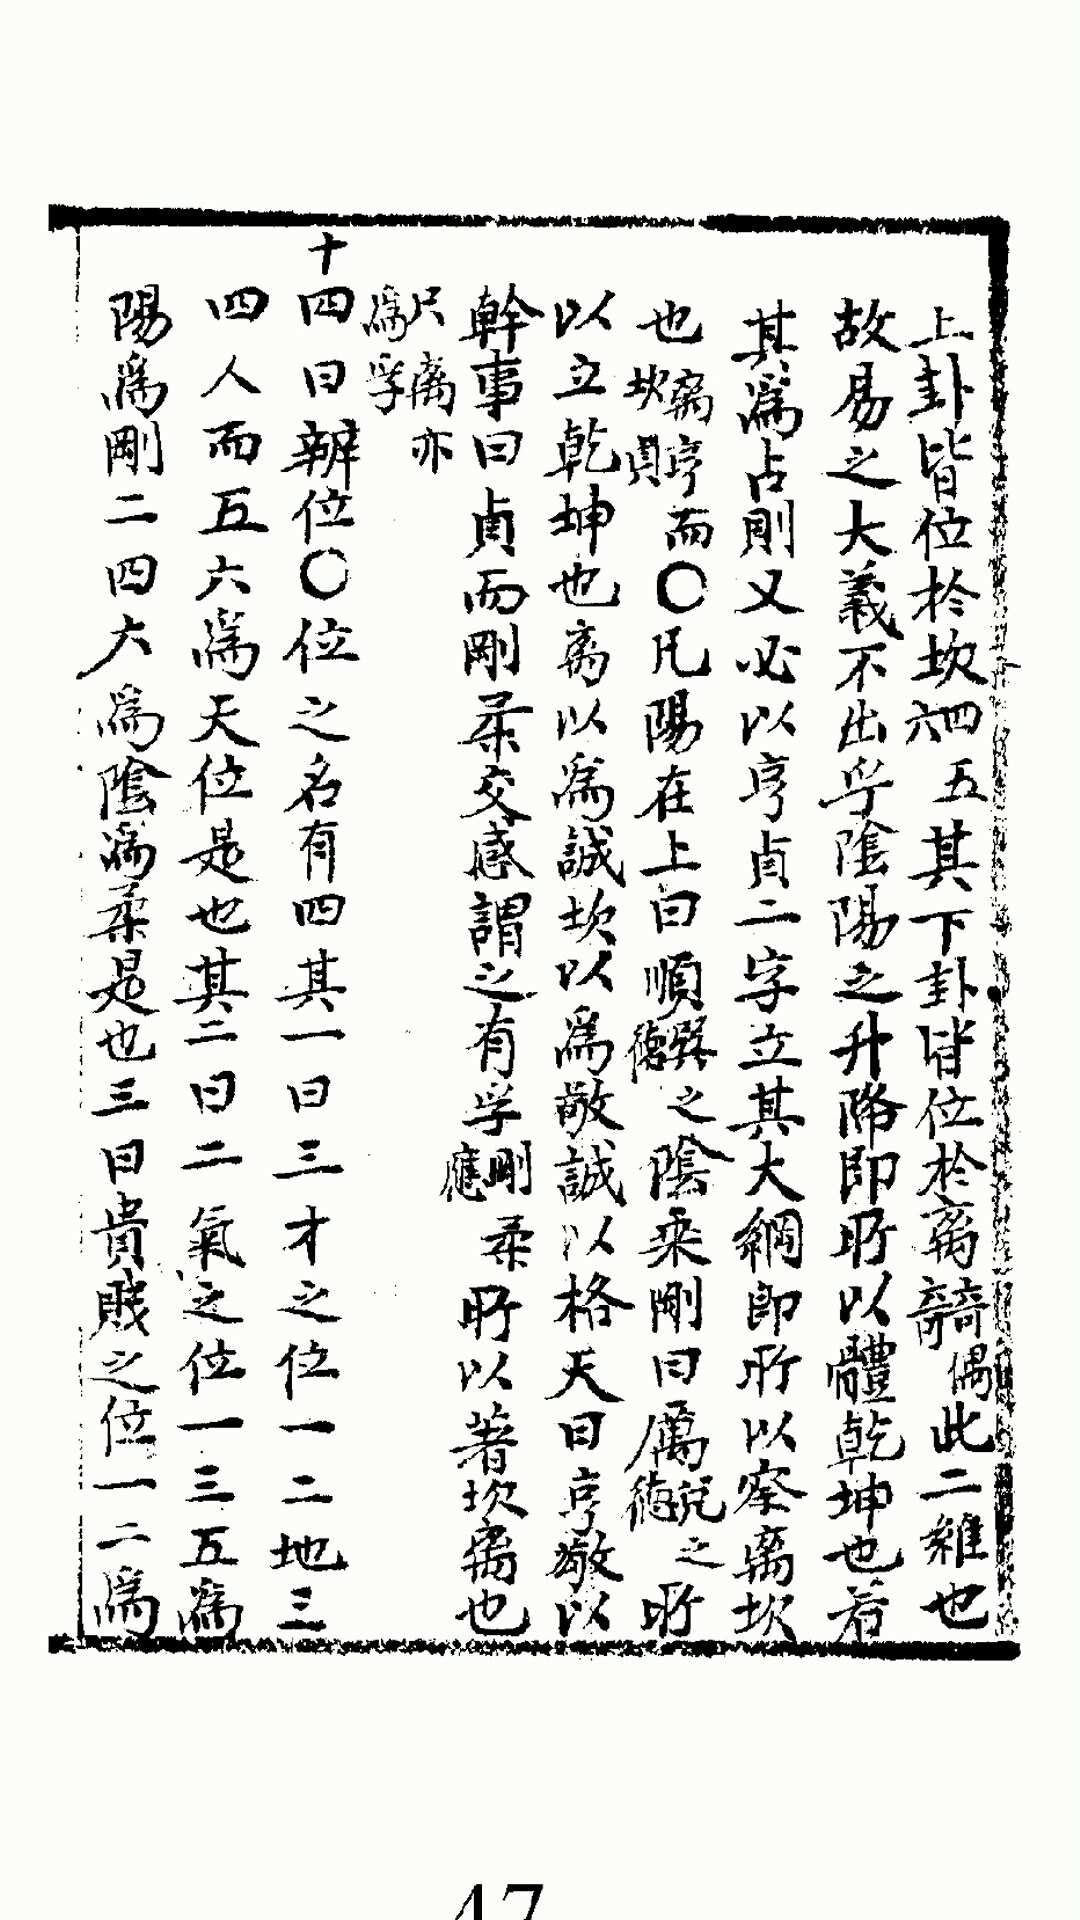 上卦皆位於坎四五六其下卦皆位於离奇偶此二雜也
故易之大義不出乎陰陽之升降即所以體乾坤也若
其爲占則又必以亨貞二字立其大綱即所以察离坎
也离亨而坎貞〇凡陽在上曰順巽之德陰乘剛曰厲兌之德所
以立乾坤也离以爲誠坎以爲敬誠以格天曰亨敬以
幹事曰貞而剛柔交感謂之有孚剛柔應所以著坎离也
只离亦爲孚
十四曰辨位〇位之名有四其一曰三才之位一二地三
四人而五六爲天位是也其二曰二氣之位一三五爲
陽爲剛二四六爲陰爲柔是也三曰貴賤之位一二爲
47